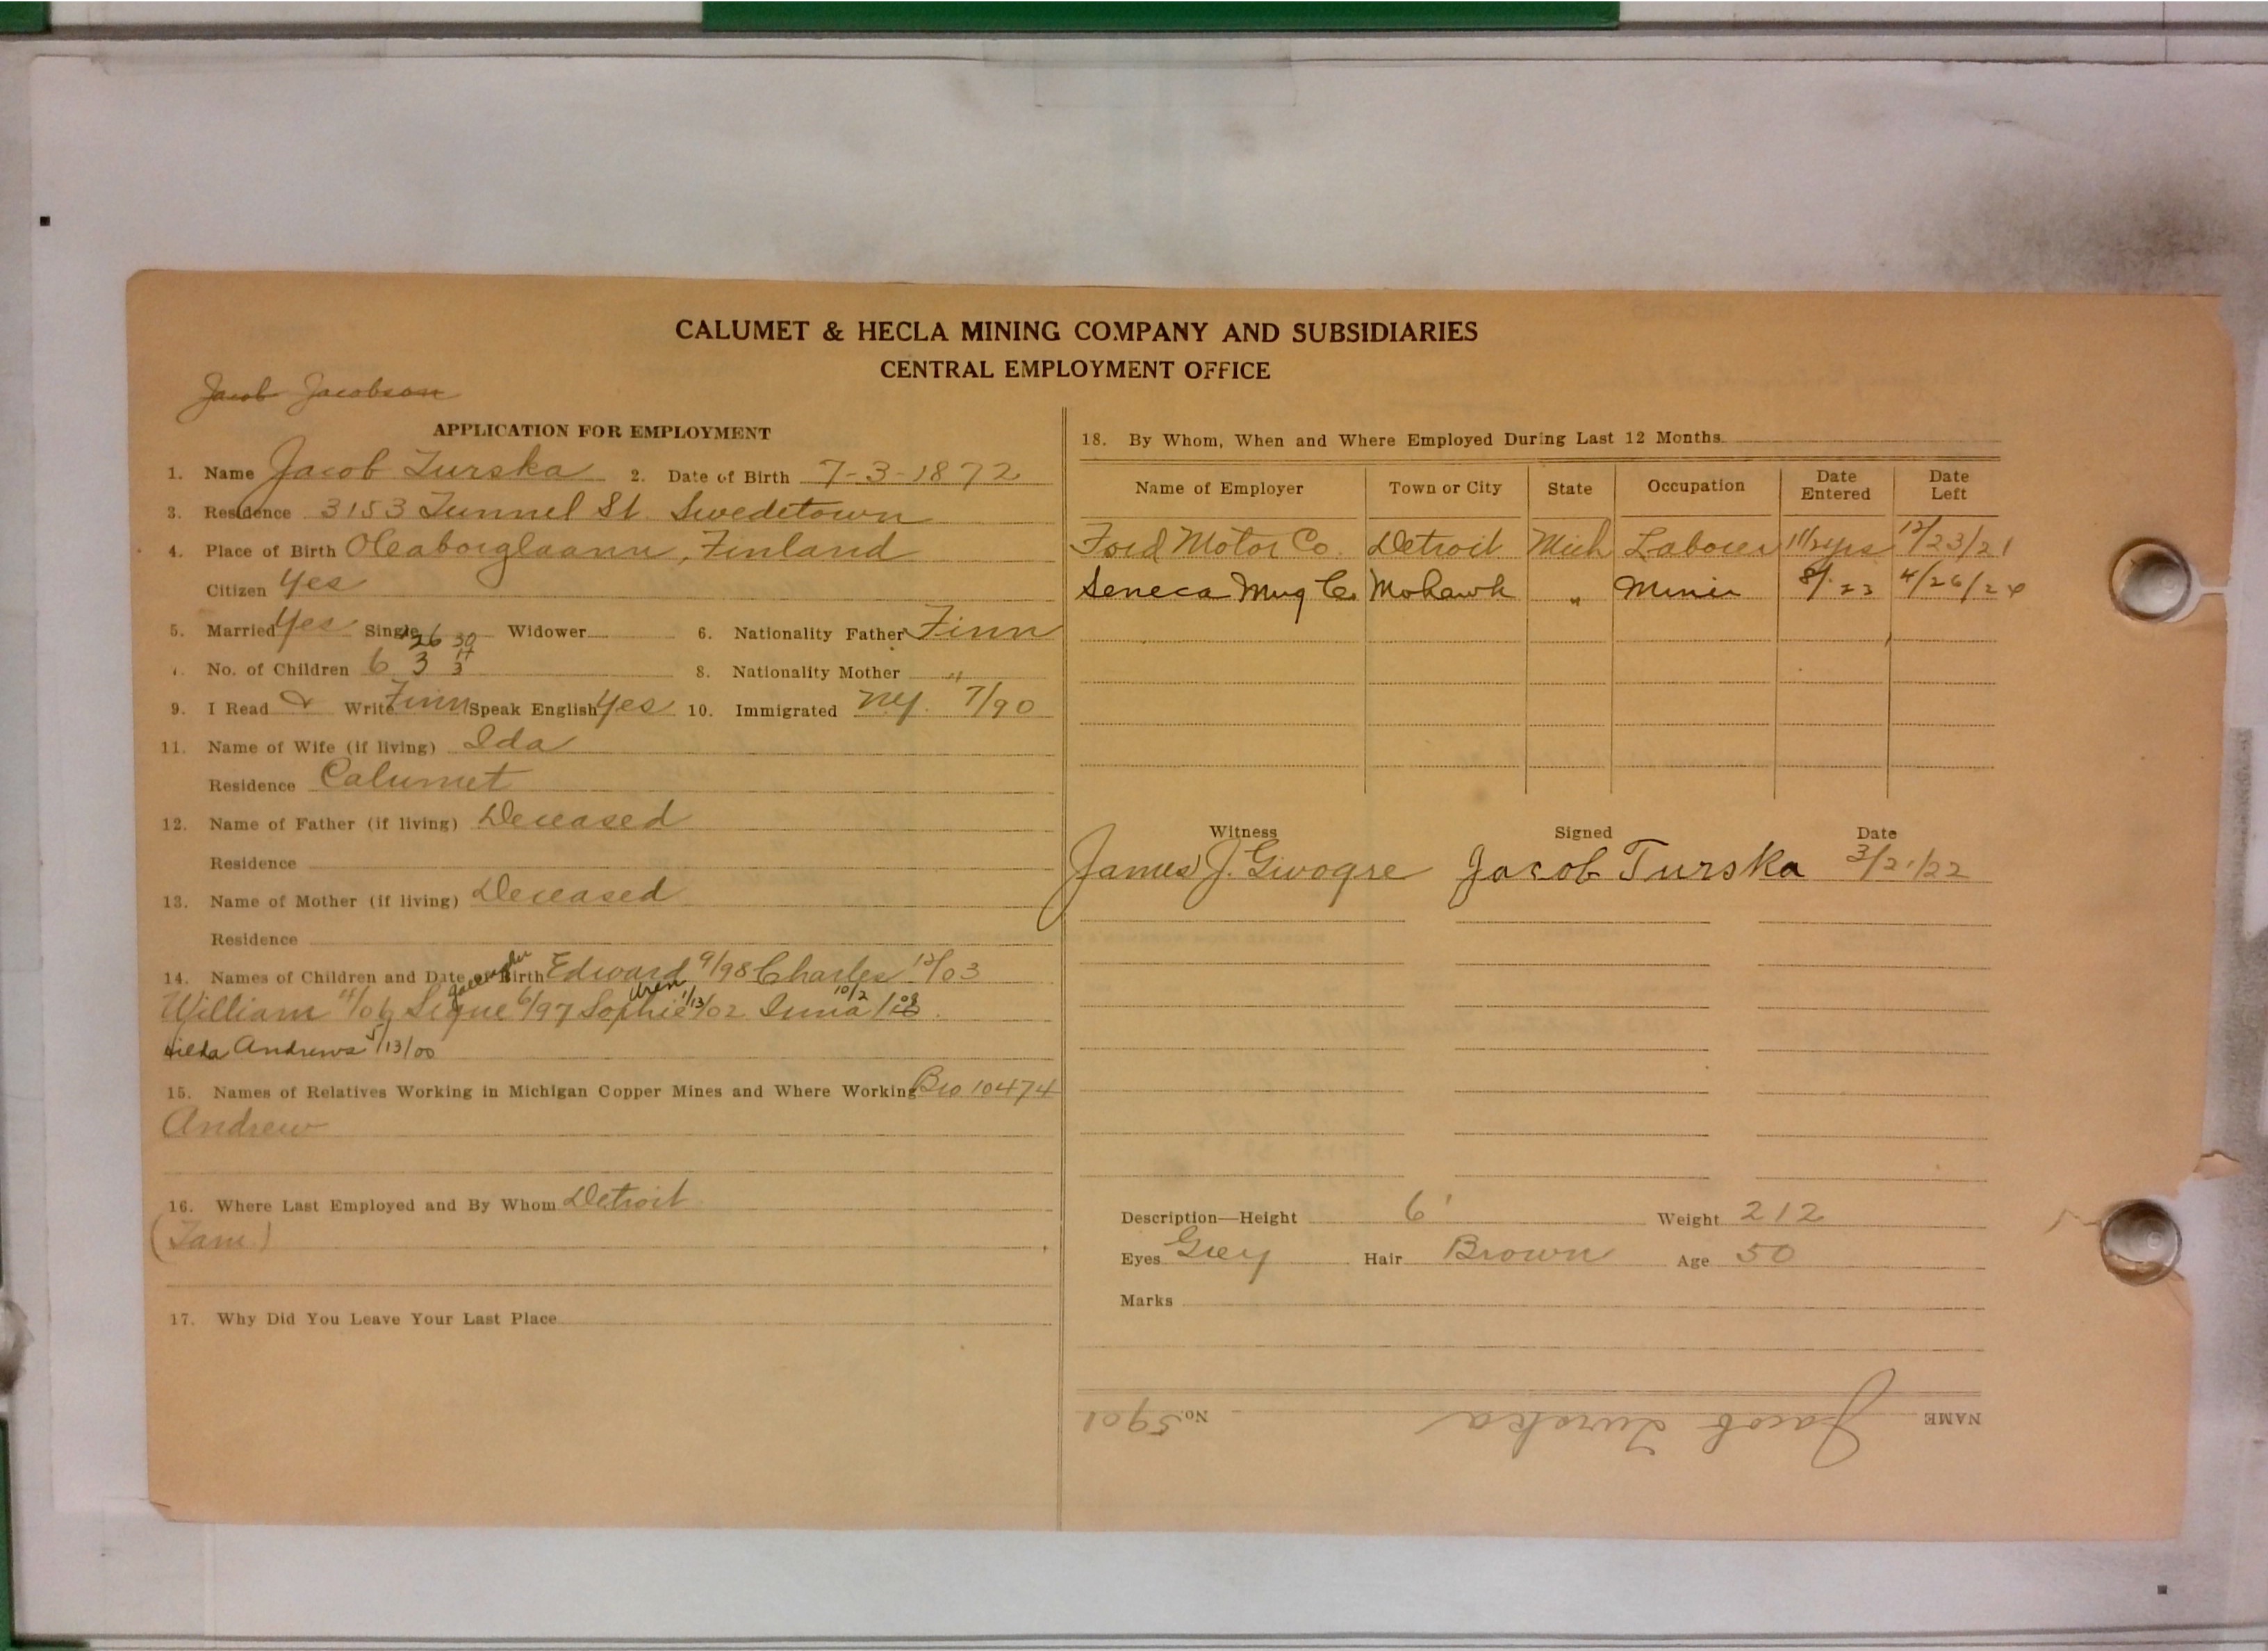 CALUMET & HECLA MINING COMPANY AND SUBSIDIARIES
CENTRAL EMPLOYMENT OFFICE
Jacob Jacobson
APPLICATION FOR EMPLOYMENT
1. Name Jacob Turska 2. Date of Birth 7-3-1872
3. Residence 3153 Tunnel St. Swedetown
4. Place of Birth Oleaborglaann, Finland
Citizen Yes
5. Married Yes Single Widower 6. Nationality Father Finn
26 30
No. of Children 6 3 3 8. Nationality Mother "
9. I Read & Write Finn Speak English Yes 10. Immigrated NY. 7/90
11. Name of Wife (if living) Ida
Residence Calumet
12. Name of Father (if living) Deceased
Residence
13. Name of Mother (if living) Deceased
Residence
14. Names of Children and Date of Birth Edward 9/98 Charles 12/03
William Signe 6/97 Sophie 1/13/02
Hilda Andrews 5/13/00
15. Names of Relatives Working in Michigan Copper Mines and Where Working Bro 10474
Andrew
16. Where Last Employed and By Whom Detroit
17. Why Did You Leave Your Last Place
18. By Whom, When and Where Employed During Last 12 Months
Name of Employer Town or City State Occupation Date Entered Date Left
Ford Motor Co. Detroit Mich Laborer 1 1/2 yrs 12/23/21
Seneca Mng Co. Mohawk " Miner 8/23 4/26/26
Witness Signed Date
James J. Jacob Turska 3/21/22
Description—Height 6' Weight 212
Eyes Grey Hair Brown Age 50
Marks
NAME Jacob Turska No. 5901